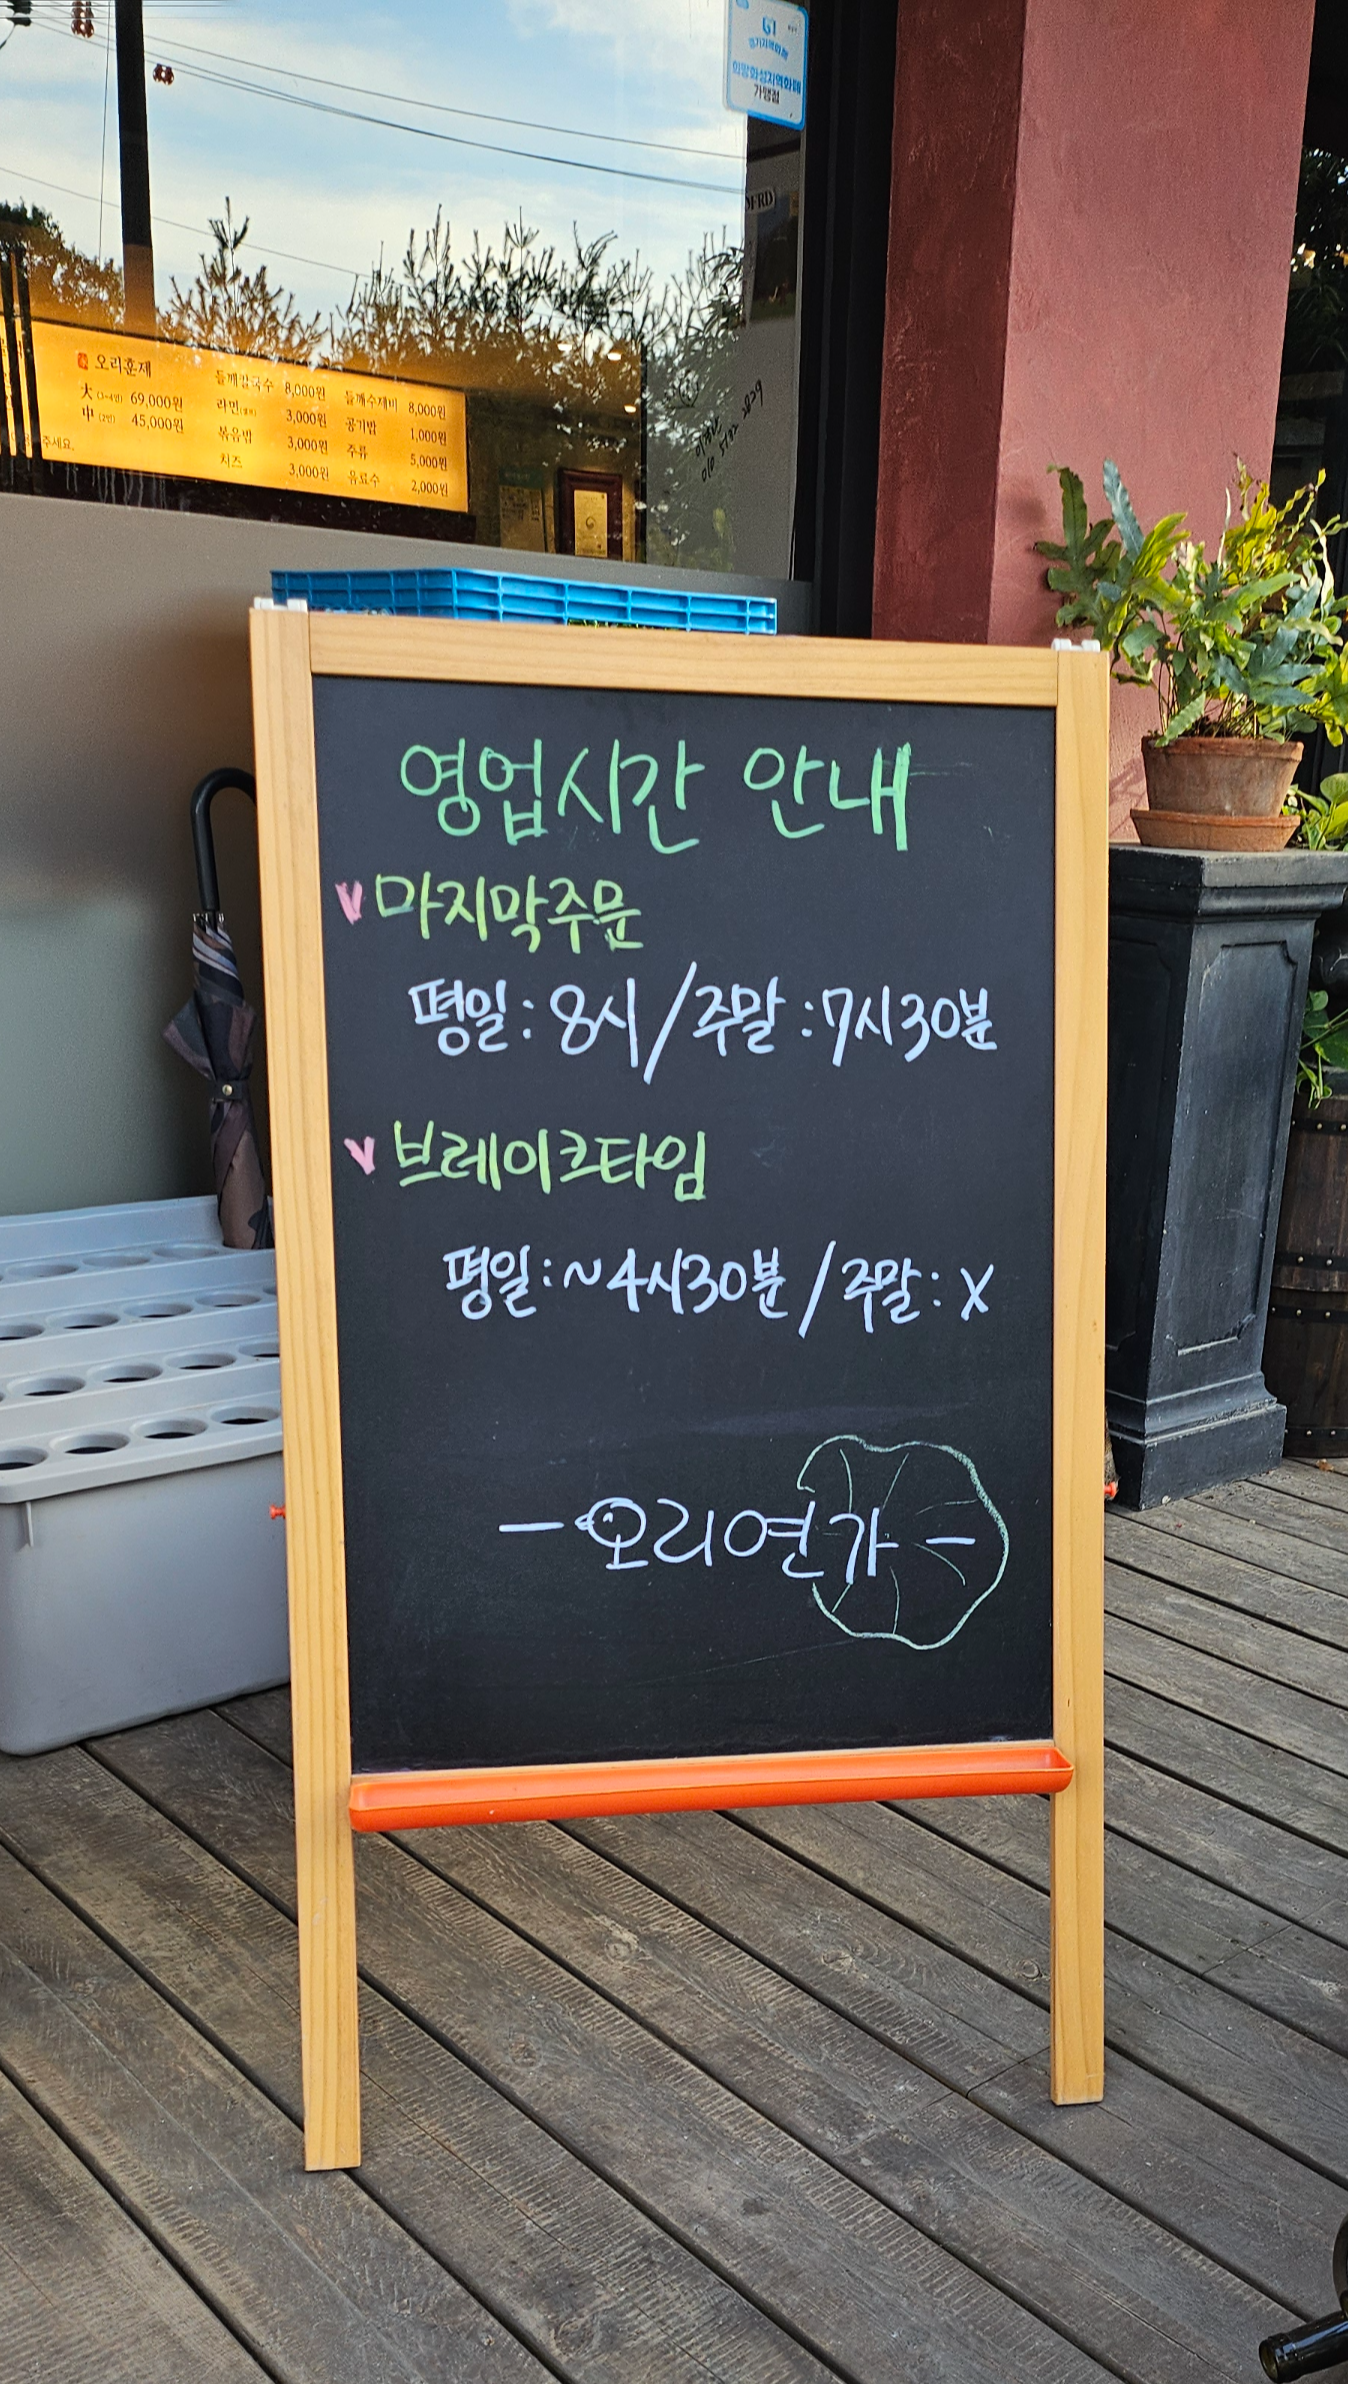 경기지역화폐
희망화성지역화폐
가맹점
오리훈제
大 (3~4인) 69,000원
中 (2인) 45,000원
들깨칼국수 8,000원
라면 3,000원
볶음밥 3,000원
치즈 3,000원
들깨수제비 8,000원
공기밥 1,000원
주류 5,000원
음료수 2,000원
주세요.
영업시간 안내
V 마지막주문
평일 : 8시 / 주말 : 7시30분
V 브레이크타임
평일 : ~4시30분 / 주말 : X
- 오리연가 -